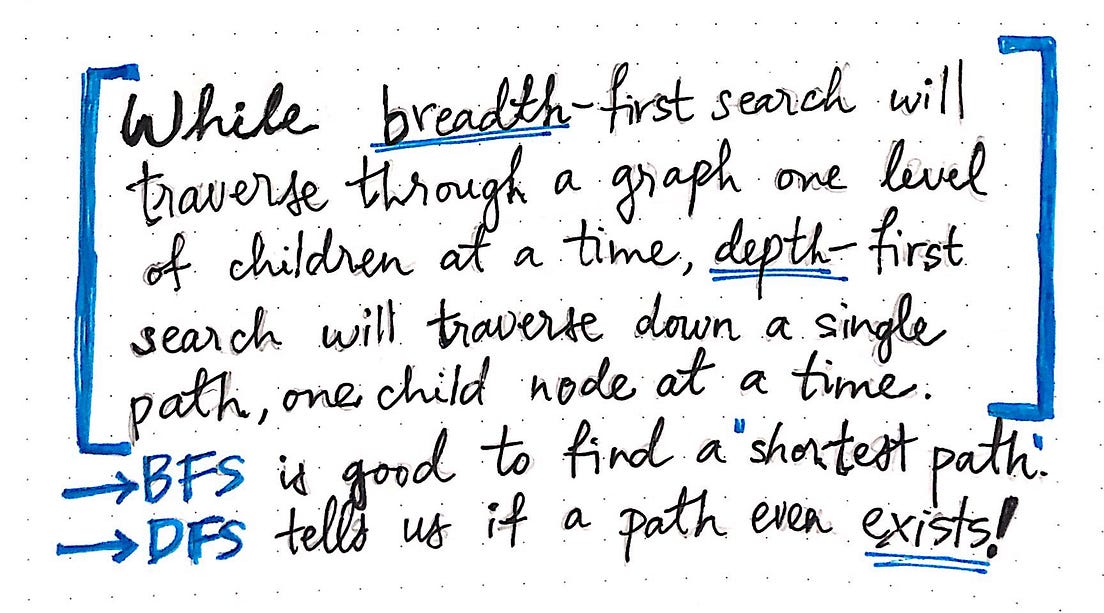 While breadth-first search will
traverse through a graph one level
of children at a time, depth-first
search will traverse down a single
path, one child node at a time.
→BFS is good to find a "shortest path".
→DFS tells us if a path even exists!